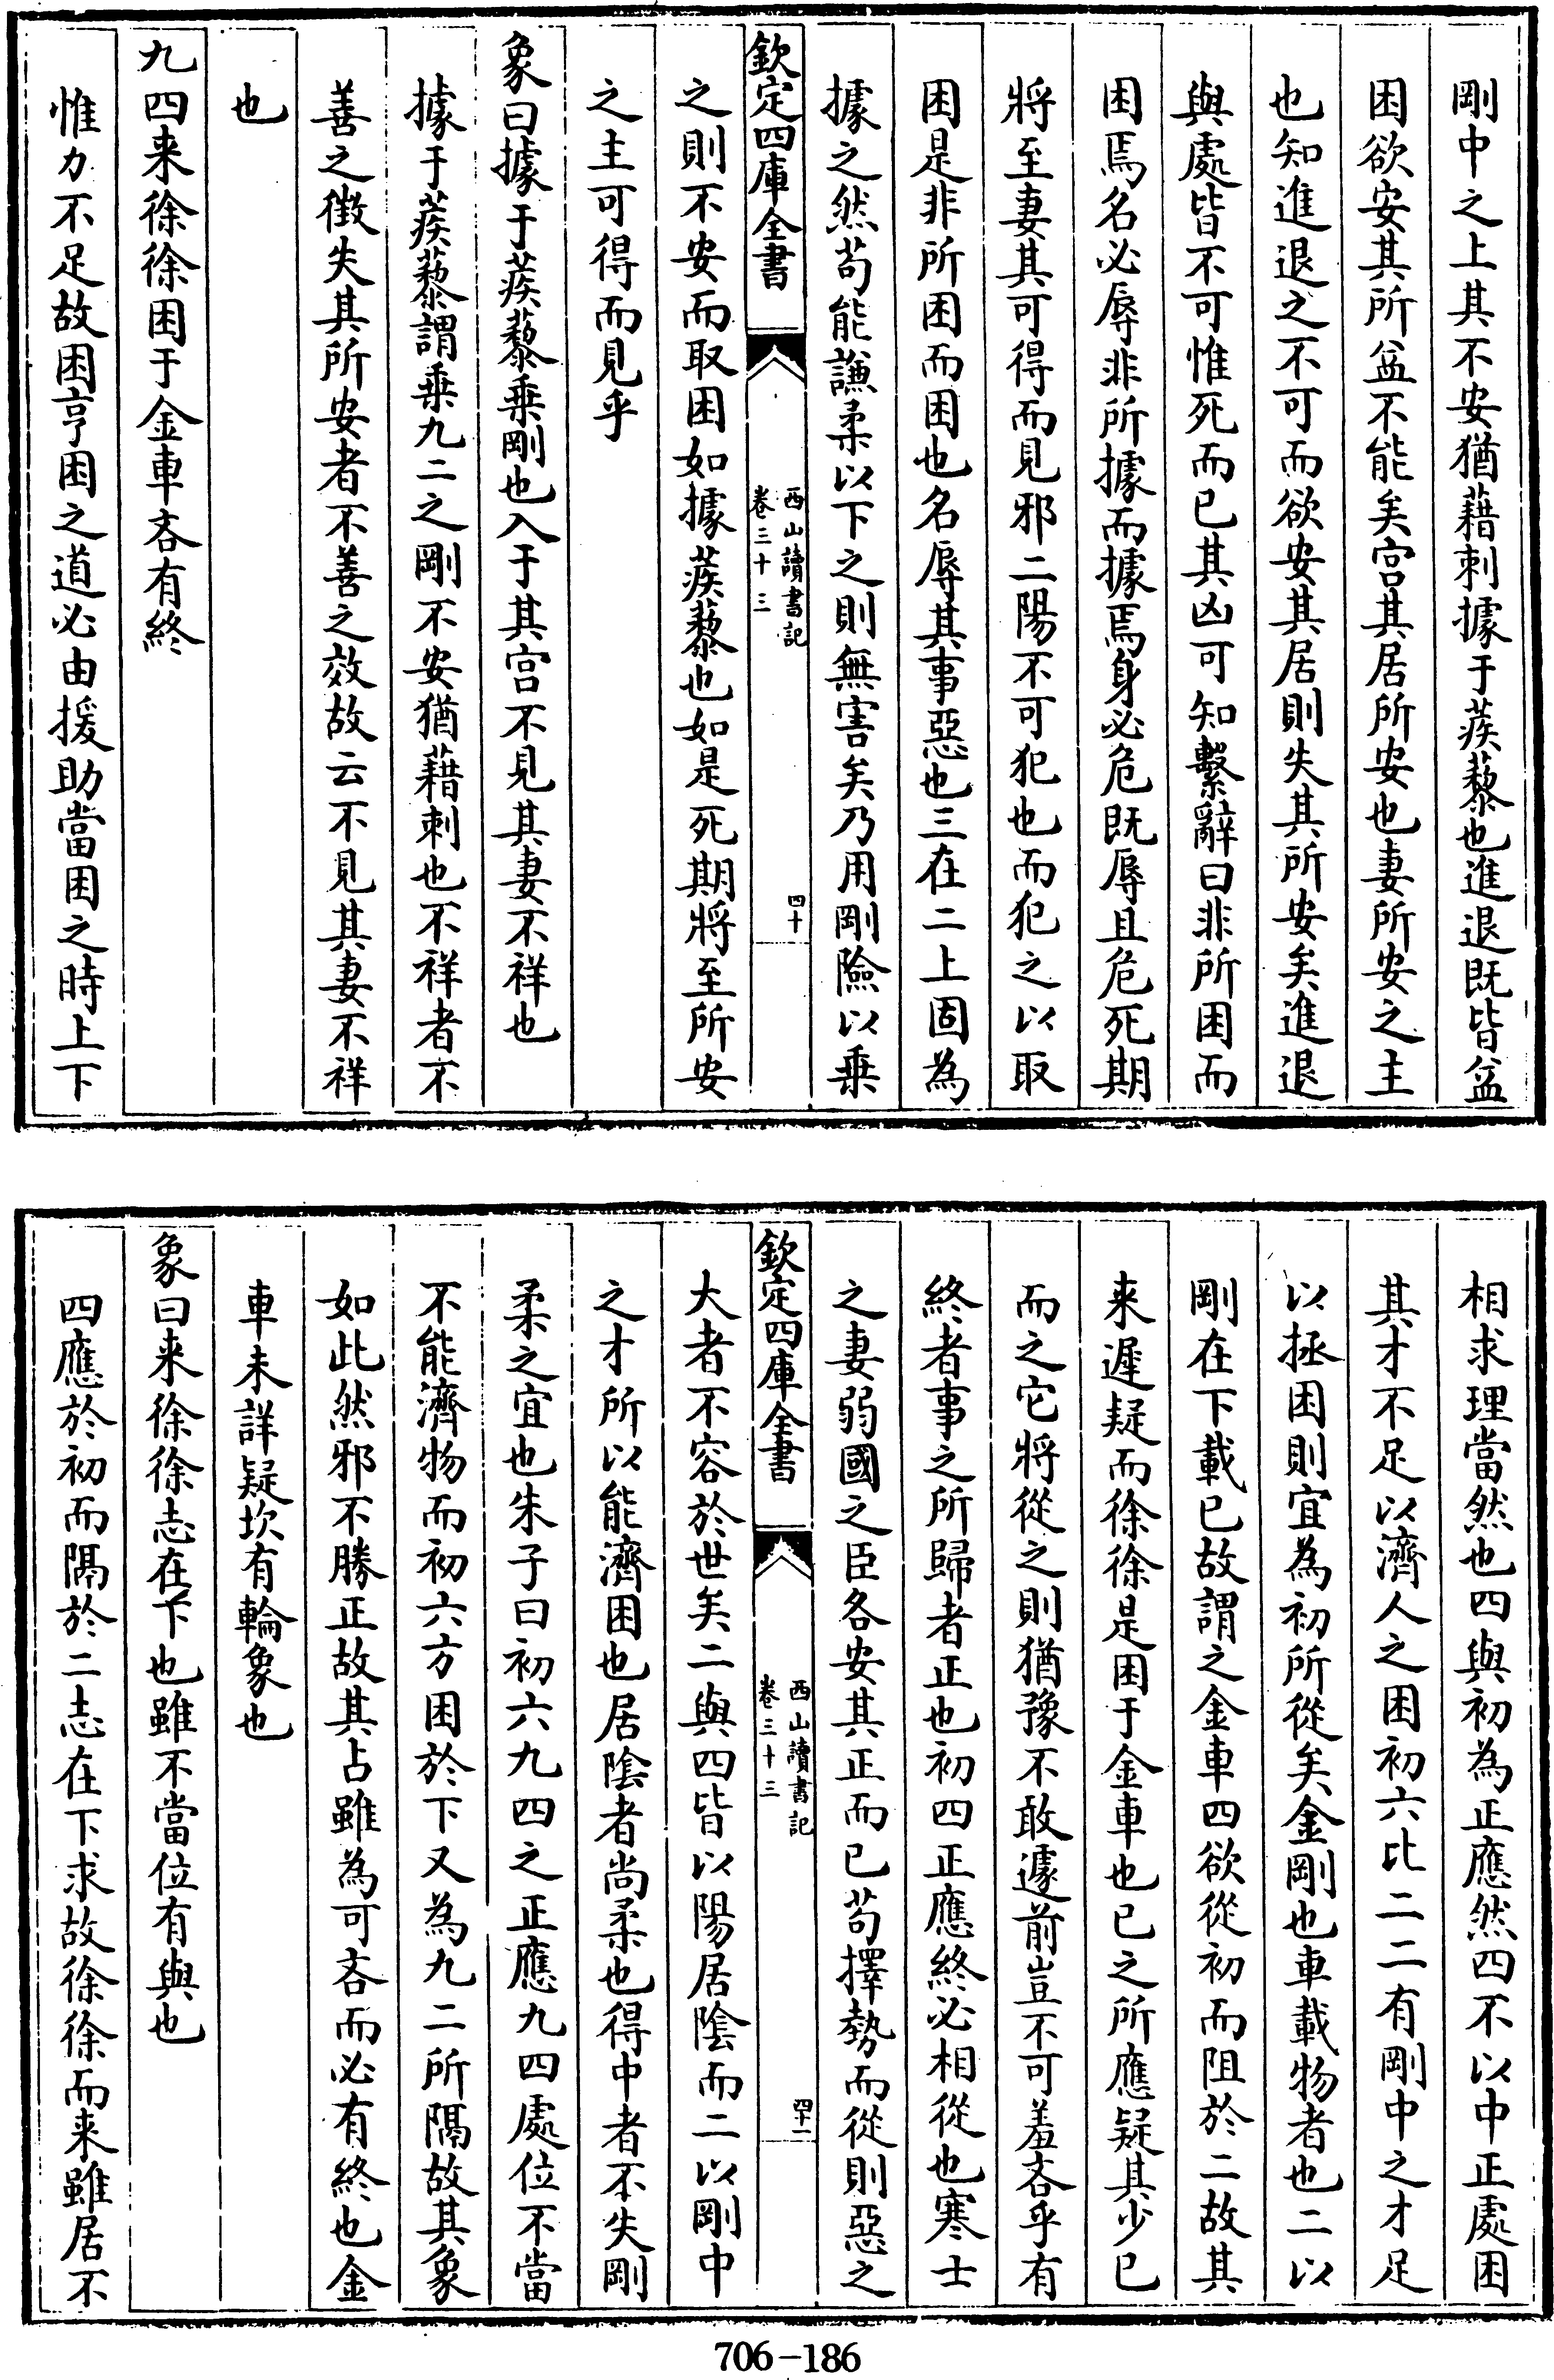 剛中之上其不安猶藉刺據于蒺藜也進退既皆益
困欲安其所益不能矣宫其居所安也妻所安之主
也知進退之不可而欲安其居則失其所安矣進退
與處皆不可惟死而已其凶可知繫辭曰非所困而
困焉名必辱非所據而據焉身必危既辱且危死期
將至妻其可得而見邪二陽不可犯也而犯之以取
困是非所困而困也名辱其事惡也三在二上固為
據之然苟能謙柔以下之則無害矣乃用剛險以乗
欽定四庫全書
西山讀書記
卷三十三
四十
之則不安而取困如據蒺藜也如是死期將至所安
之主可得而見乎
象曰據于蒺藜乗剛也入于其宫不見其妻不祥也
據于蒺藜謂乗九二之剛不安猶藉刺也不祥者不
善之徴失其所安者不善之效故云不見其妻不祥
也
九四来徐徐困于金車吝有終
惟力不足故困亨困之道必由援助當困之時上下
相求理當然也四與初為正應然四不以中正處困
其才不足以濟人之困初六比二二有剛中之才足
以拯困則宜為初所從矣金剛也車載物者也二以
剛在下載已故謂之金車四欲從初而阻於二故其
来遲疑而徐徐是困于金車也已之所應疑其少已
而之它將從之則猶豫不敢遽前豈不可羞吝乎有
終者事之所歸者正也初四正應終必相從也寒士
之妻弱國之臣各安其正而已苟擇勢而從則惡之
欽定四庫全書
西山讀書記
卷三十三
四十一
大者不容於世矣二與四皆以陽居陰而二以剛中
之才所以能濟困也居陰者尚柔也得中者不失剛
柔之宜也朱子曰初六九四之正應九四處位不當
不能濟物而初六方困於下又為九二所隔故其象
如此然邪不勝正故其占雖為可吝而必有終也金
車未詳疑坎有輪象也
象曰来徐徐志在下也雖不當位有與也
四應於初而隔於二志在下求故徐徐而来雖居不
706-186